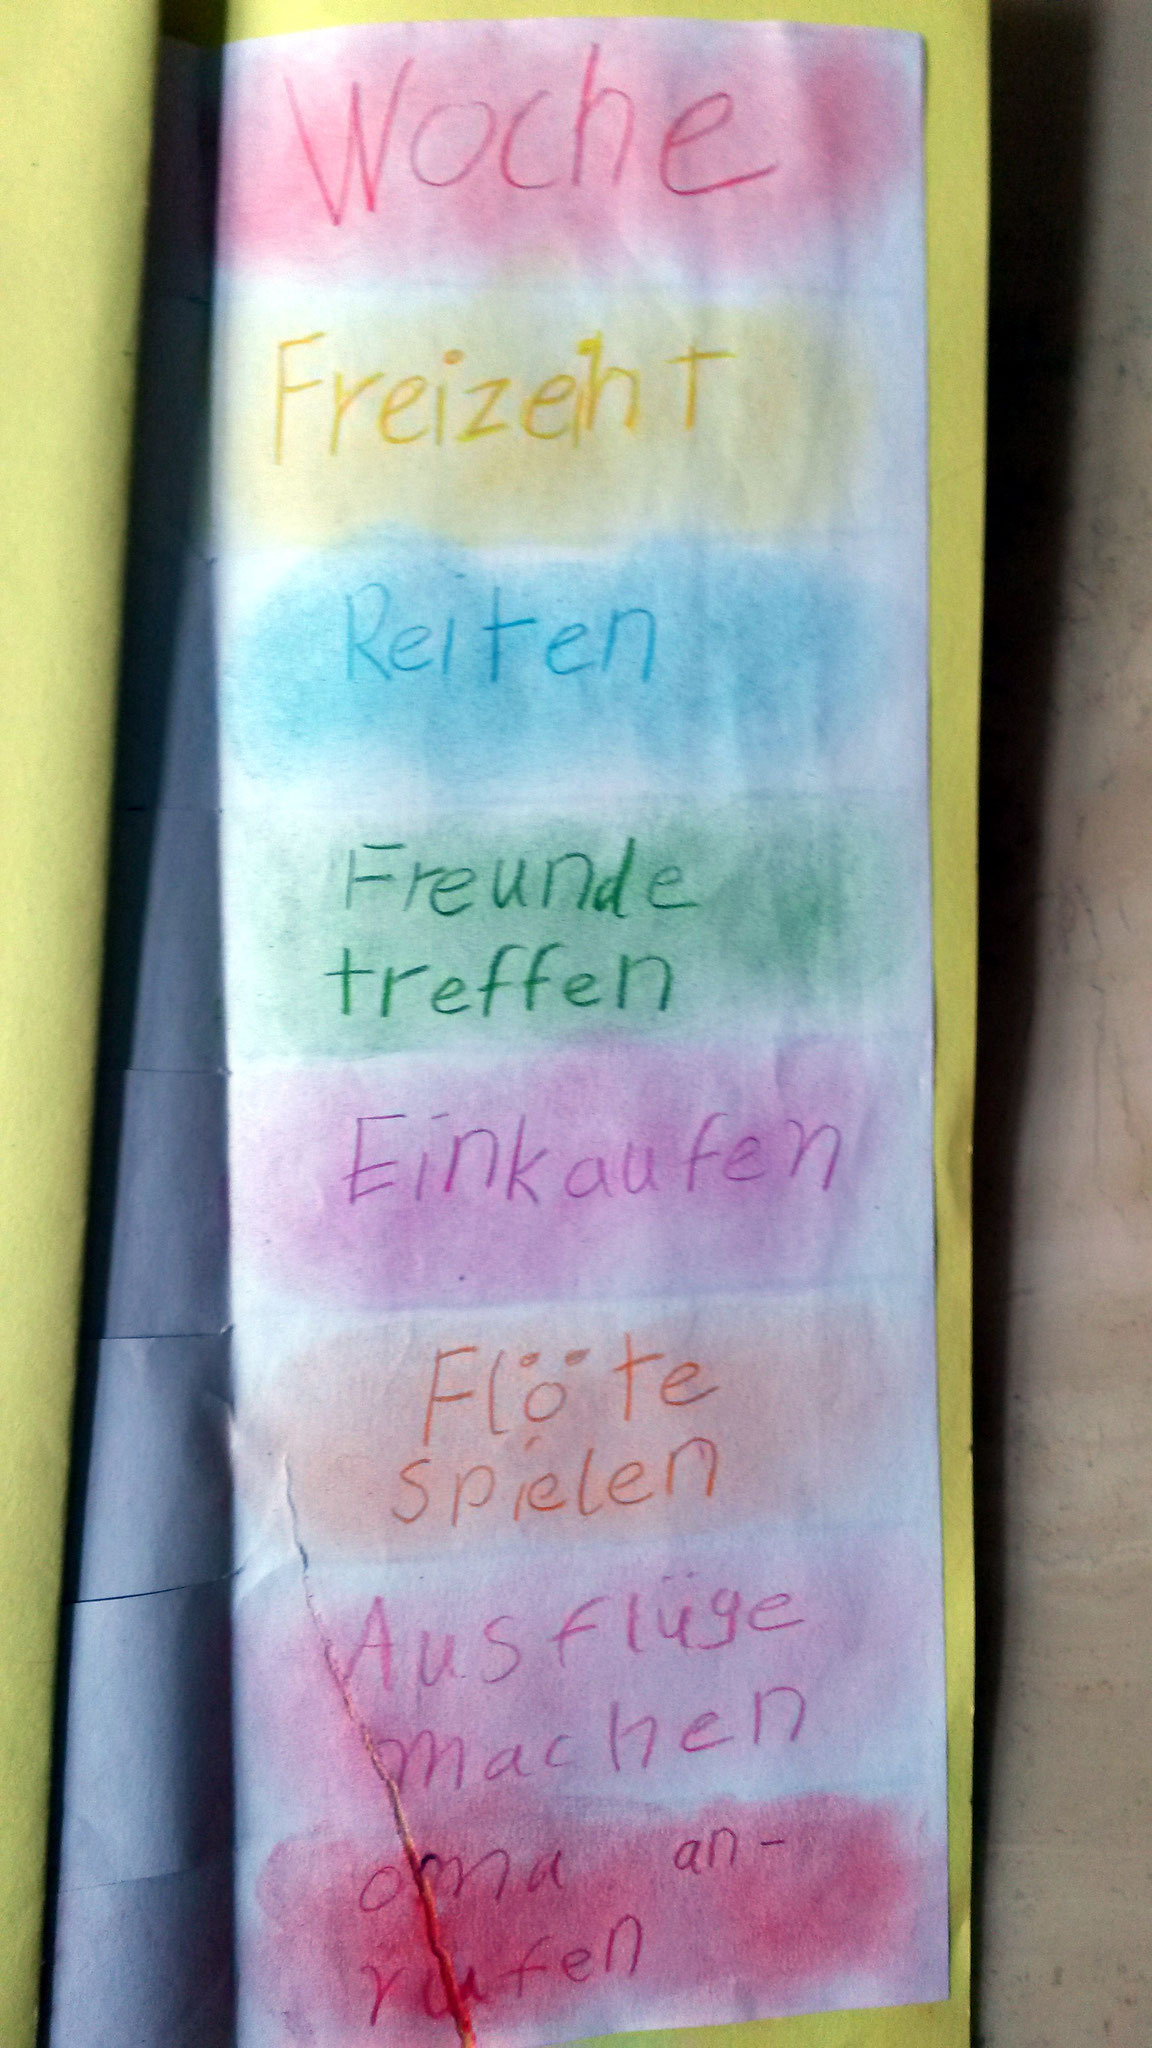 Woche
Freizeiht
Reiten
Freunde
treffen
Einkaufen
Flöte
spielen
Ausflüge
machen
oma an-
rufen